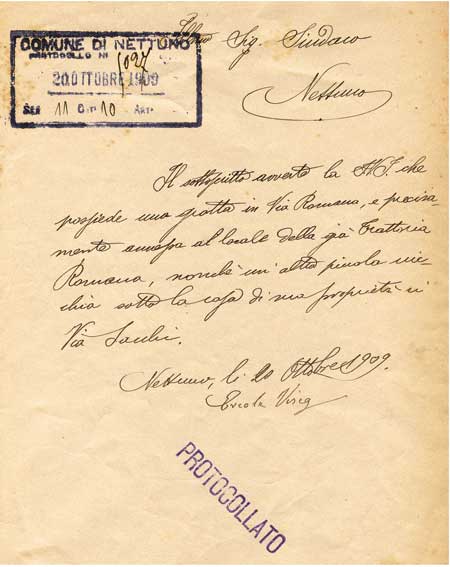 COMUNE DI NETTUNO
PROTOCOLLO N. 5097
20 OTTOBRE 1909
11 10 ART.
Illmo Sig. Sindaco
Nettuno
Il sottoscritto avverte la S.V.I. che
possiede una grotta in Via Romana, e precisa-
mente annessa al locale della già Trattoria
Romana, nonchè un'altra piccola nic-
chia sotto la casa di sua proprietà in
Via
Nettuno, li 20 Ottobre 1909.
Ercole
PROTOCOLLATO